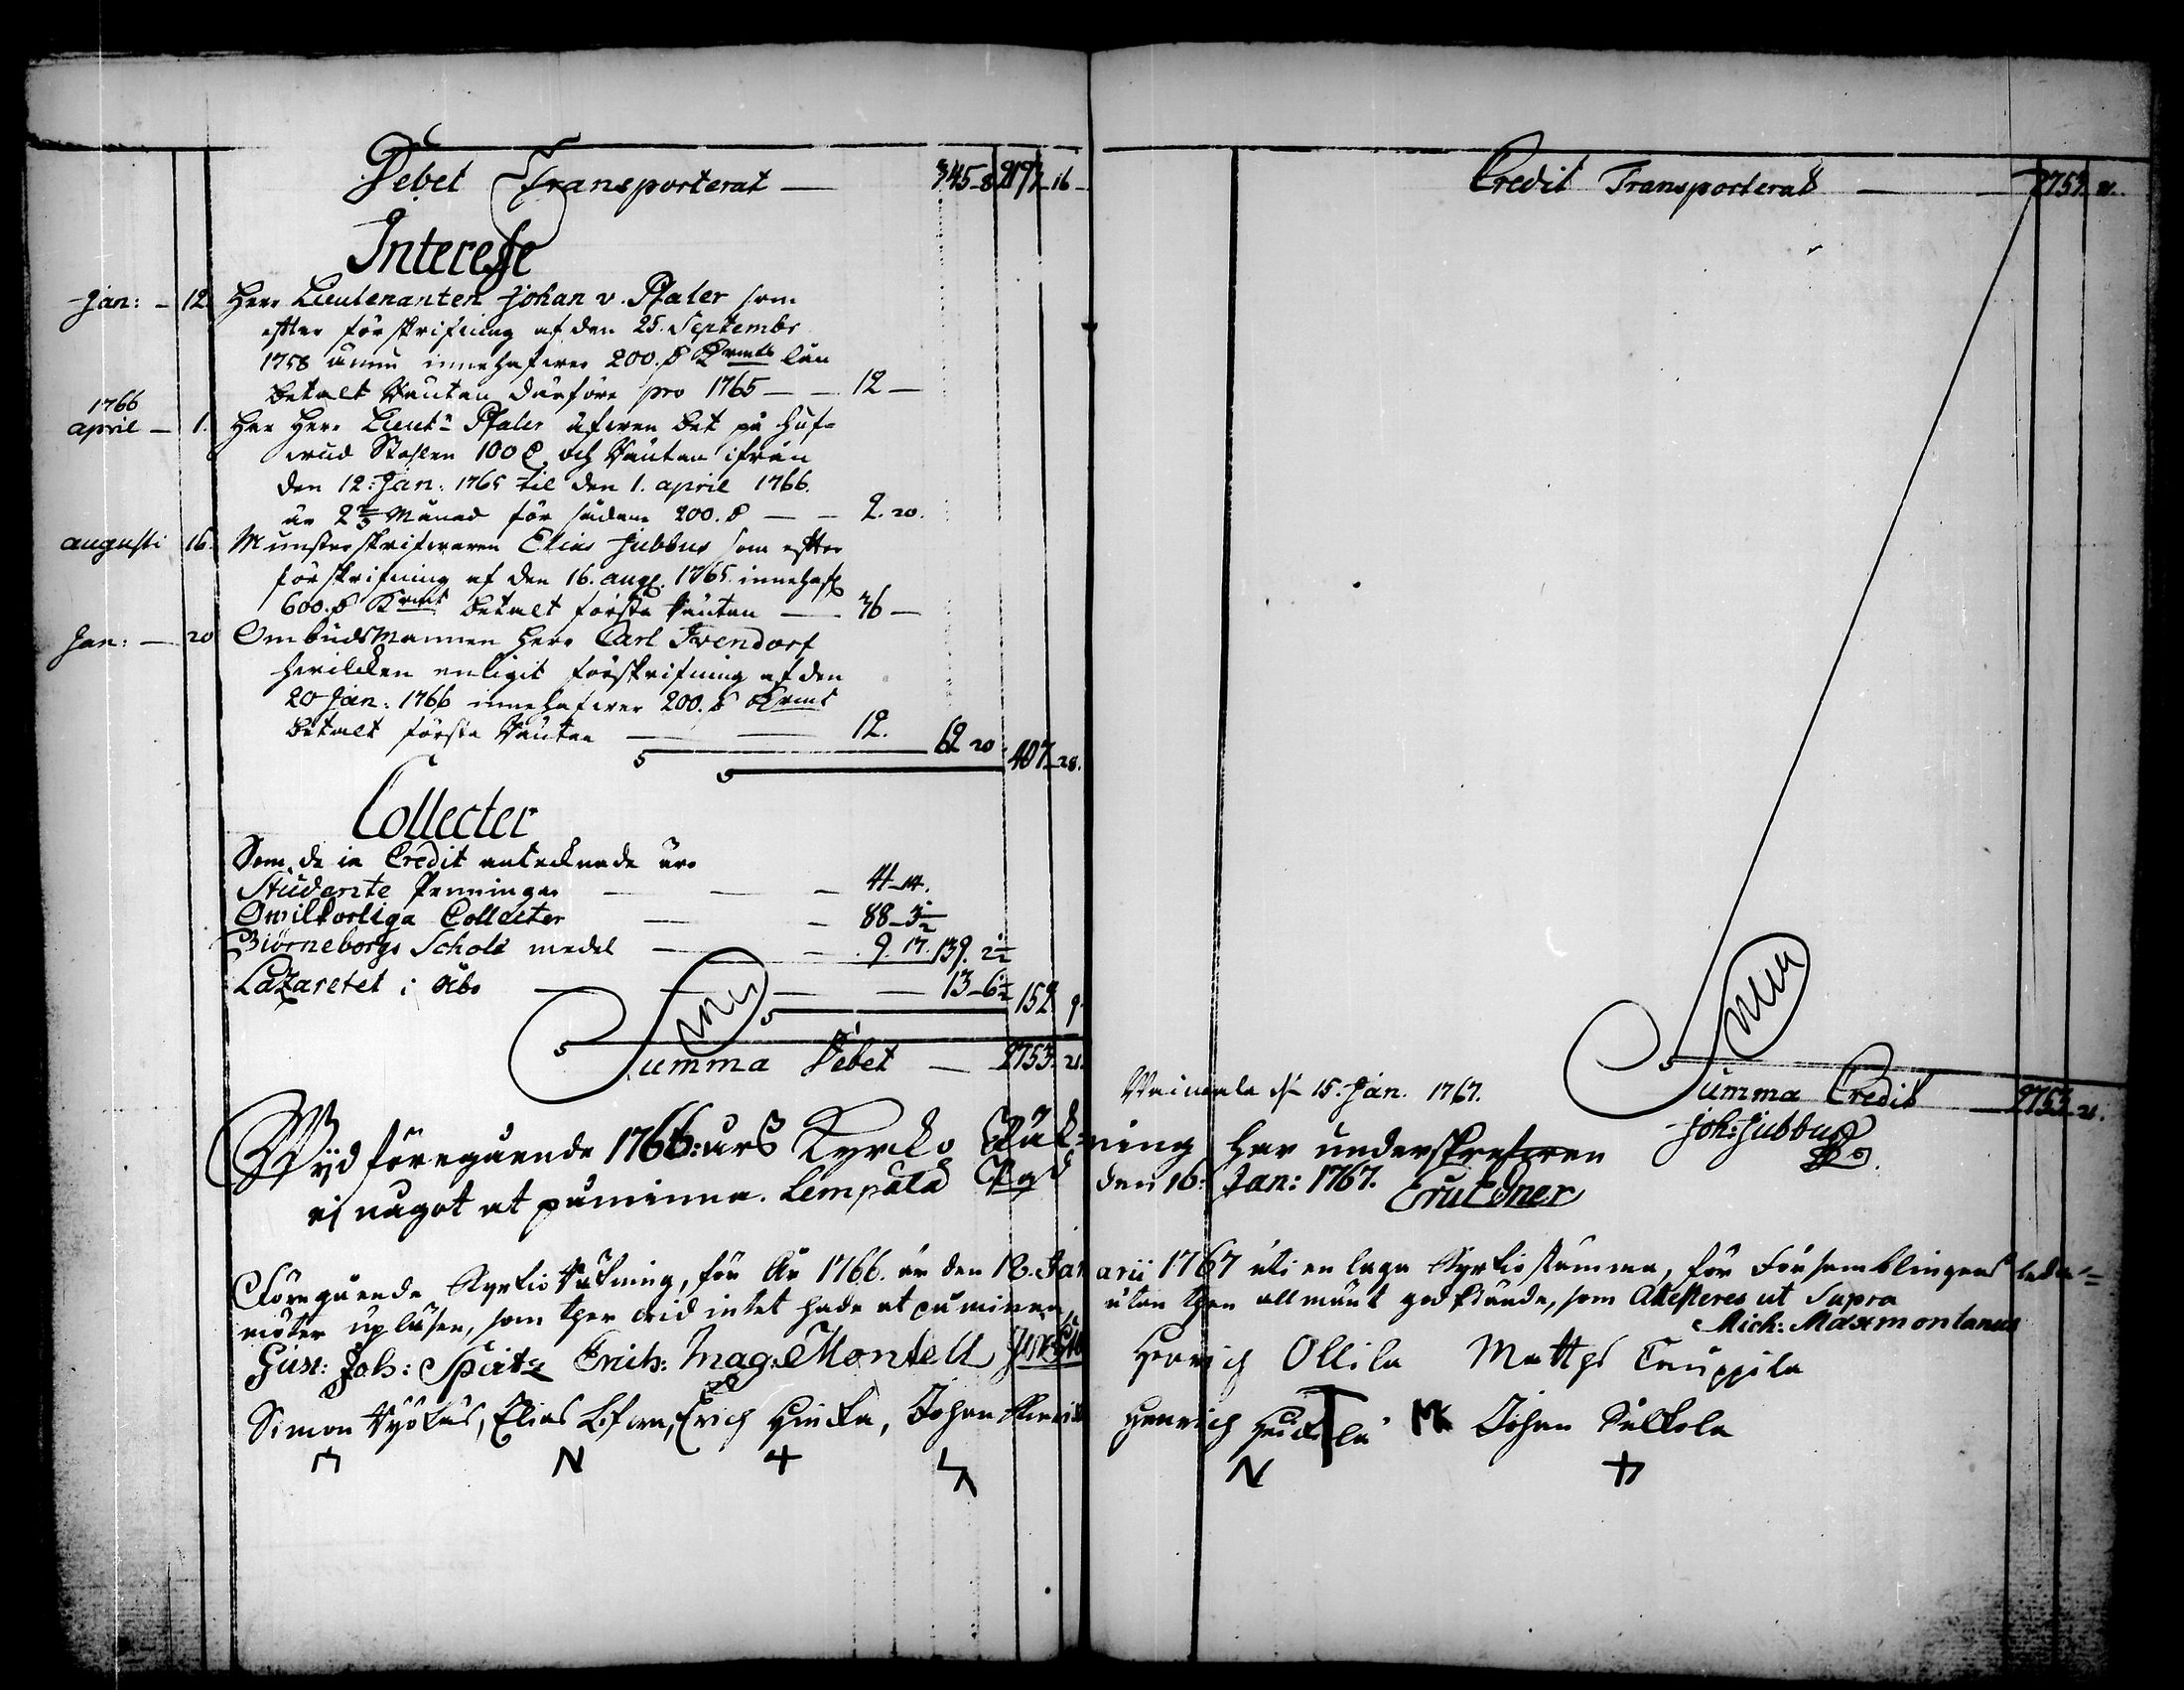 Debet Transporterat — 345 – 8 2193 – 16 –
Interesse
Jan: – 12 Herr Lieutenanten Johan v. Pfaler som
efter förskrifning af den 25. Septembr
1758 ännu innehafwer 200. D Kmt lån
betalt Räntan därföre pro 1765 — 12 —
1766
april — 1. Har Herr Lieut:n Pfaler äfwen bet på huf-
wud Stolen 100 D och Räntan ifrån
den 12: Jan: 1765 til den 1. april 1766.
är 2 2/3 Månad för sådane 200. D — 2. 20.
augusti 16. Munsterskrifwaren Elias Jubbus som efter
förskrifning af den 16. aug. 1765. innehaft
600. D Kmt betalt första Räntan — 36 —
Jan: — 20 Ombudsmannen Herr Carl Trendorf
hwilcken enligit förskrifning af den
20 Jan: 1766 innehafwer 200. D Kmt
betalt första Räntan — 12. 62 20 407 – 28.
Collecter
Som de in Credit antecknade äro
Studente Penningar — 41 – 14.
Owilkorliga Collecter — 88 – 3 1/2
Biörneborgs Schole medel — 9. 17. 139. 2 1/2
Lazaretet i Åbo — 13 – 6 1/2 152 9.
Summa Debet — 2753. 21.
Credit Transporterat — 2753. 21.
Summa Credit — 2753. 21.
d. 15. Jan. 1767.
Joh: Jubbus
Wyd föregående 1766: års Kyrcko Räkning har underskrefwen
ej något at påminna. Lempälä Pgd den 16: Jan: 1767.
Föregående Kyrkio Räkning, för År 1766. är den 18. Januarii 1767 uti en laga Kyrkiostämma, för Församblingens leda-
möter upläsen, som ther wid intet hade at påminna, utan then allmänt godkände, som Attesteres ut Supra
Mich: Maxmontanus
Gust: Joh: Spåtz Erich: Mag: Montell Henrich Ollila Matths Tauppila
Simon Elias Erich Hinka, Johan Henrich Johan Sälkola
N + N